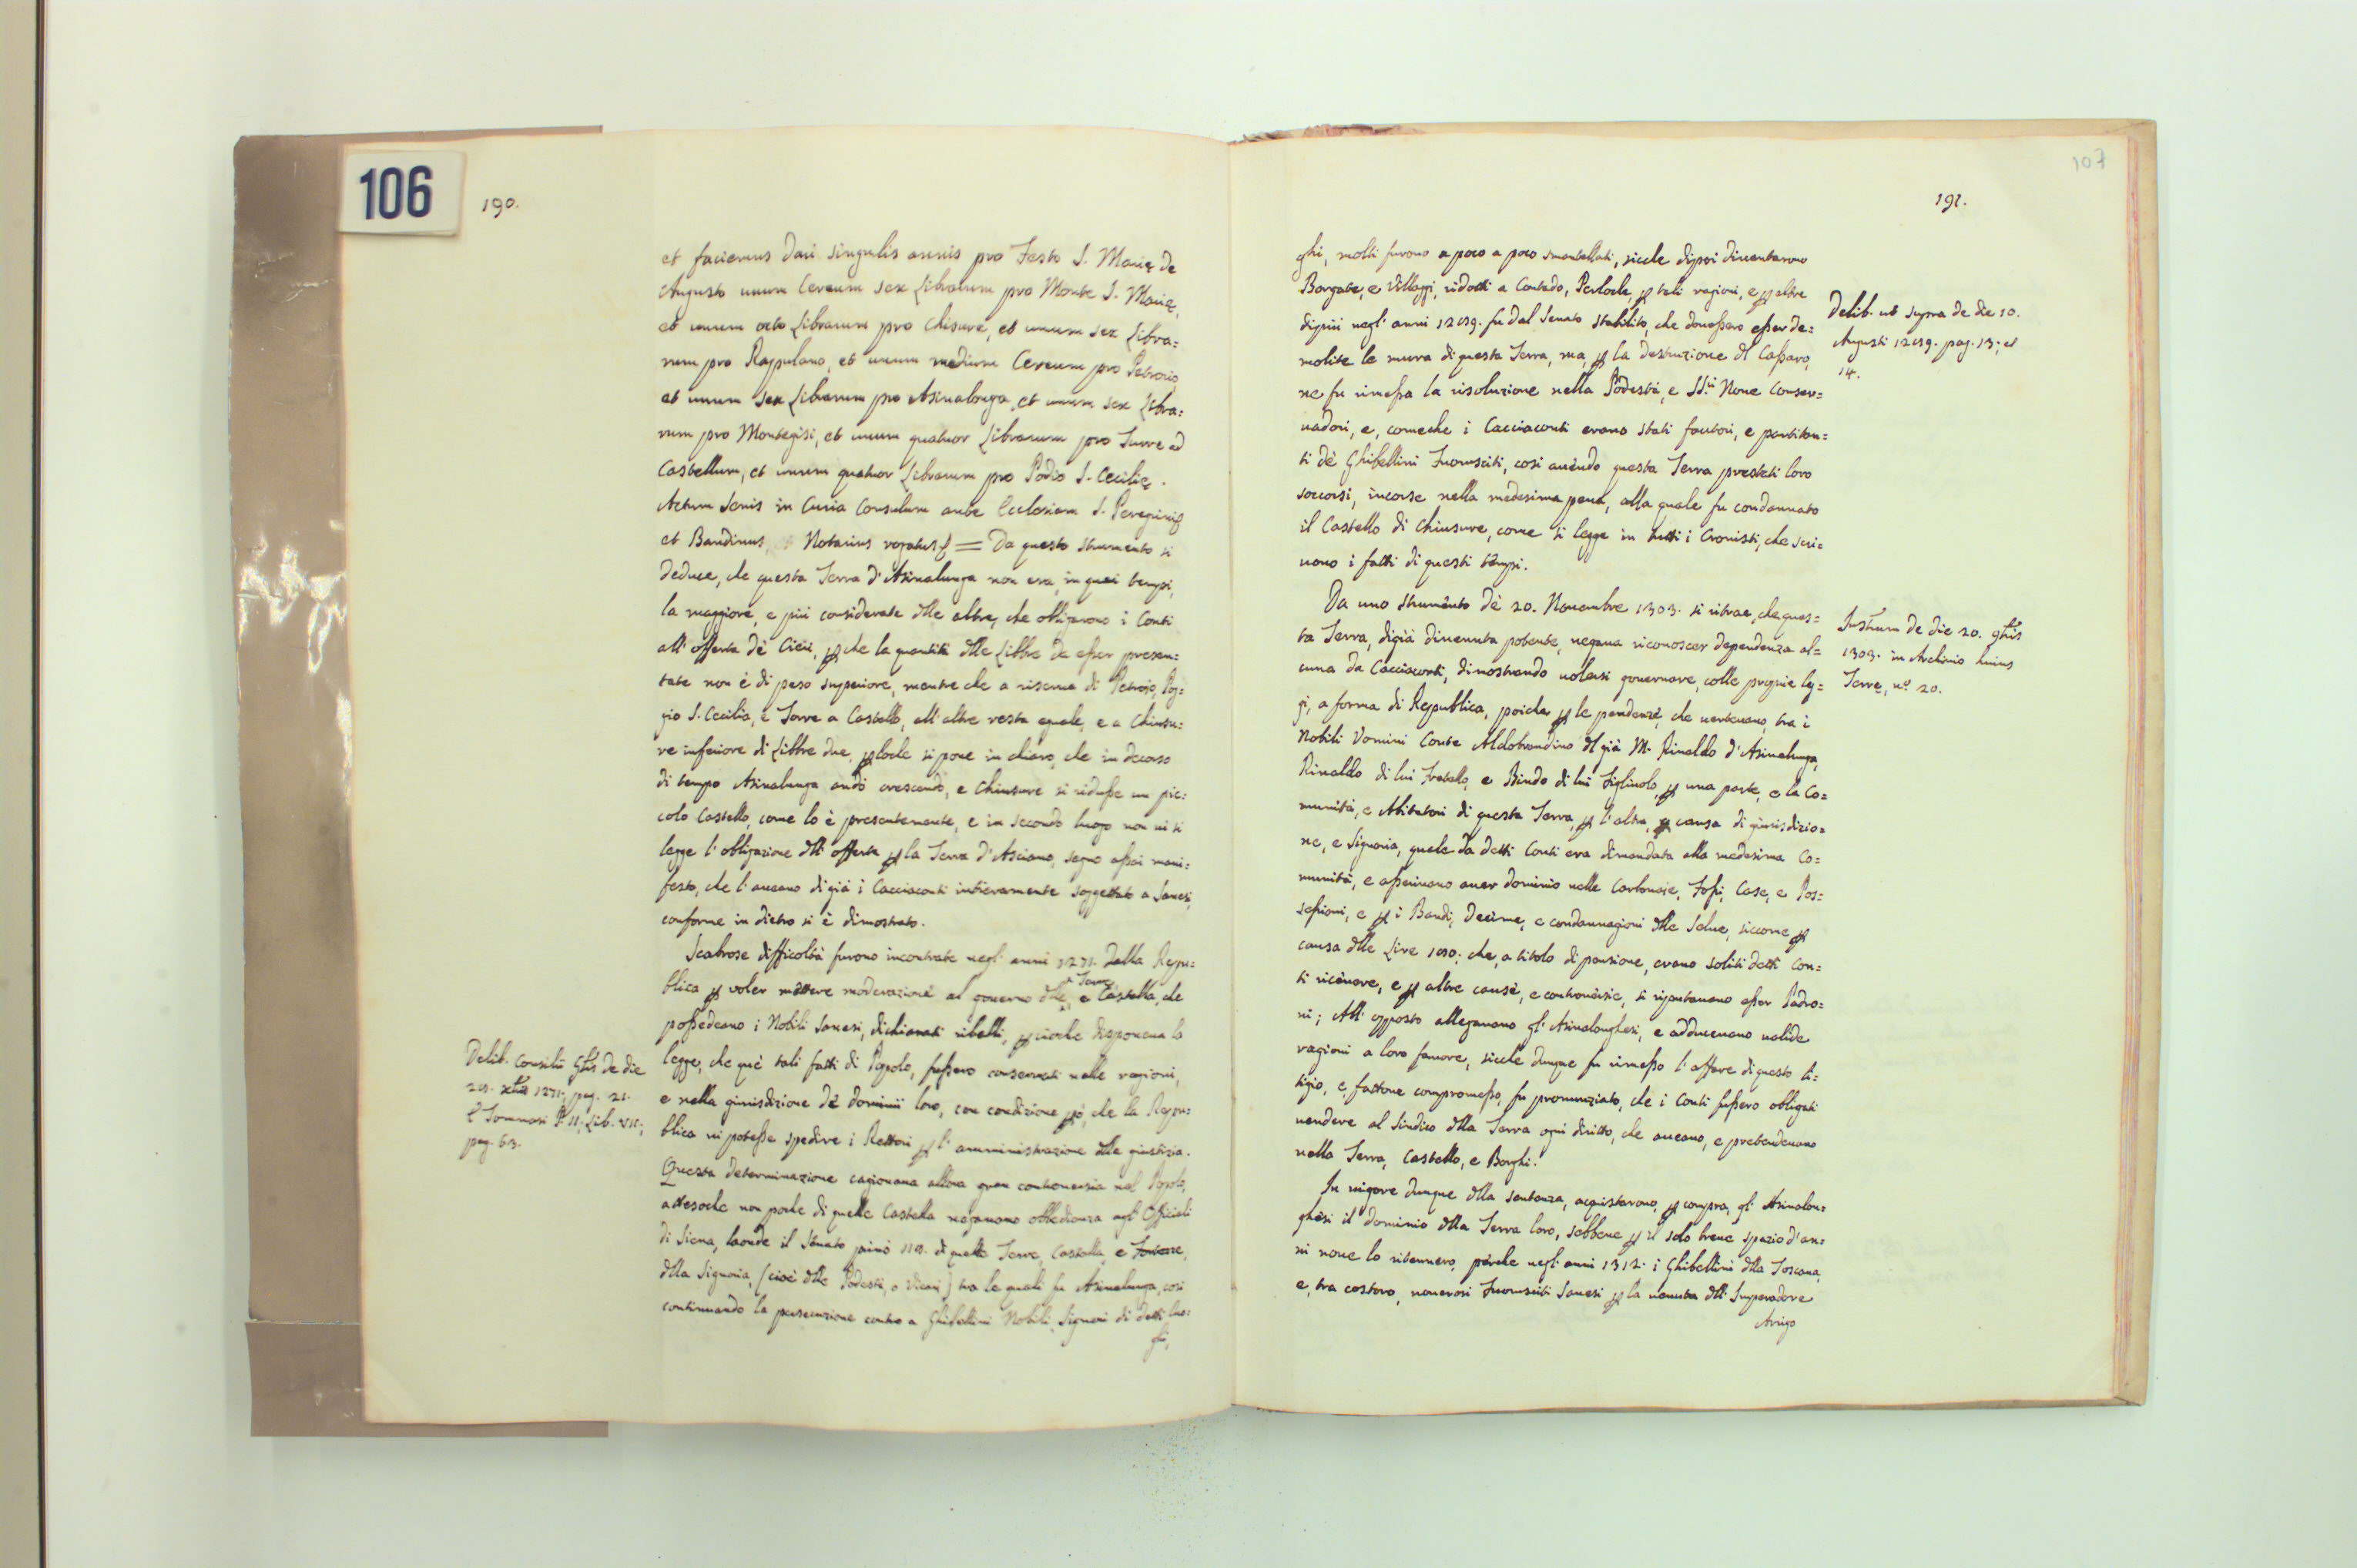 106
190.
et faciemus dari singulis annis pro Festo S. Marię de
Augusto unum Cereum sex Librarum pro Monte S. Marię,
et unum octo Librarum pro Chisure, et unum sex Libra=
rum pro Rapulano, et unum medium Cereum pro Petroio,
et unum sex Librarum pro Asinalonga, et unum sex Libra=
rum pro Montegisi, et unum quatuor Librarum pro Turre ad
Castellum, et unum quatuor Librarum pro Podio S. Cecilię.
Actum Senis in Curia Consulum ante Ecclesiam S. Peregrini
et Bandinus, Notarius rogatus = Da questo strumento si
deduce, che questa Terra d'Asinalunga non era, in quei tempi,
la maggiore, e più considerata dlle altre, che obligarono i Conti
all'offerta dè Cieri, p che la quantità dlle Libbre da esser presen=
tate non è di peso superiore, mentre che a riserva di Petroio, Pog=
gio S. Cecilia, e Torre a Castello, all'altre resta eguale, e a Chiusu=
re inferiore di Libbre due, ploche si pone in chiaro, che in decorso
di tempo Asinalunga andò crescendo, e Chiusure si ridusse un pic=
colo Castello, come lo è presentemente, e in secondo luogo non vi si
legge l'obligazione dll'offerta p la Terra d'Asciano, segno assai mani=
festo, che l'aueano digià i Cacciaconti intieramente soggettato a Sanesi,
conforme in dietro si è dimostrato.
Scabrose difficoltà furono incontrate negl'anni 1271. dalla Repu=
blica p voler mettere moderazione al gouerno dlle Terre, e Castella, che
possedeano i Nobili Sanesi, dichiarati ribelli, p cioche disponeua la
legge, che què tali fatti di Popolo, fussero conseruati nelle ragioni,
e nella giurisdizione dè dominii loro, con condizione pò, che la Repu=
blica ui potesse spedire i Rettori p l'amministrazione dlla giustizia.
Questa determinazione cagionaua allora gran controuersia nel Popolo,
attesoche non poche di quelle Castella negauano obbedienza agl'Officiali
di Siena, laonde il Senato priuò di quelle Terre, Castella, e Fortezze,
dlla Signoria, (cioè dlle Podestà, o Vicari) tra le quali fu Asinalunga, così
continuando la persecuzione contro a Ghibellini Nobili, Signori di detti luo=
ghi,
Delib. Consilii Glis de die
1271. pag. 21.
Tommasi P. II. Lib. VII.
pag. 63.
107
191.
ghi, molti furono a poco a poco smantellati, sicche dipoi diuentarono
Borgate, e Villaggi, ridotti a Contado, Perloche, p tali ragioni, e p altre
dipiù negl'anni 1269. fu dal Senato stabilito, che douessero esser de=
molite le mura di questa Terra, ma, p la destruzione dl Cassaro,
ne fu rimessa la risoluzione nella Podestà, e SS.ri Noue Conser=
uadori, e, comeche i Cacciaconti erano stati fautori, e partitan=
ti dè Ghibellini Fuorusciti, così auendo questa Terra prestati loro
soccorsi, incorse nella medesima pena, alla quale fu condannato
il Castello di Chiusure, come si legge in tutti i Cronisti, che scri=
uono i fatti di questi tempi.
Da uno strumento dè 20. Nouembre 1303. si ritrae, che ques=
ta Terra, digià diuenuta potente, negaua riconoscer dependenza al=
cuna da Cacciaconti, dimostrando uolersi gouernare, colle proprie leg=
gi, a forma di Republica, poiche p le pendenze, che uerteuano, tra i
Nobili Uomini Conte Aldobrandino dl già M. Rinaldo d'Asinalunga,
Rinaldo di lui Fratello, e Bindo di lui Figliuolo, p una parte, e la Co=
munità, e Abitatori di questa Terra, p l'altra, p causa di giurisdizio=
ne, e Signoria, quale da detti Conti era dimandata alla medesima Co=
munità, e asseriuano auer dominio nelle Carbonaie, Fossi, Case, e Pos=
sessioni, e p i Bandi, Decime, e condannagioni dlle Selue, siccome p
causa dlle Lire 100; che, a titolo di pensione, erano soliti detti Con=
ti riceuere, e p altre cause, e controuersie, si riputauano esser Padro=
ni; All'opposto allegauano gl'Asinalonghesi, e adduceuano ualide
ragioni a loro fauore, sicche dunque fu rimesso l'affare di questo li=
tigio, e, fattone compromesso, fu pronunziato, che i Conti fussero obligati
uendere al Sindico dlla Terra ogni diritto, che aueano, e pretendeuano
nella Terra, Castello, e Borghi.
In uigore dunque dlla sentenza, acquistarono, p compra, gl'Asinalon=
ghesi il dominio dlla Terra loro, sebbene p il solo breue spazio d'an=
ni noue lo ritennero, perche negl'anni 1312. i Ghibellini dlla Toscana,
e, tra costoro, numerosi Fuorusciti Sanesi p la uenuta dll'Imperadore
Arrigo
Delib. ut supra de die 10.
Augusti 1269. pag. 13; et
14.
Instrum. de die 20. 9bris
1303. in Archiuio huius
Terrę, n.º 20.